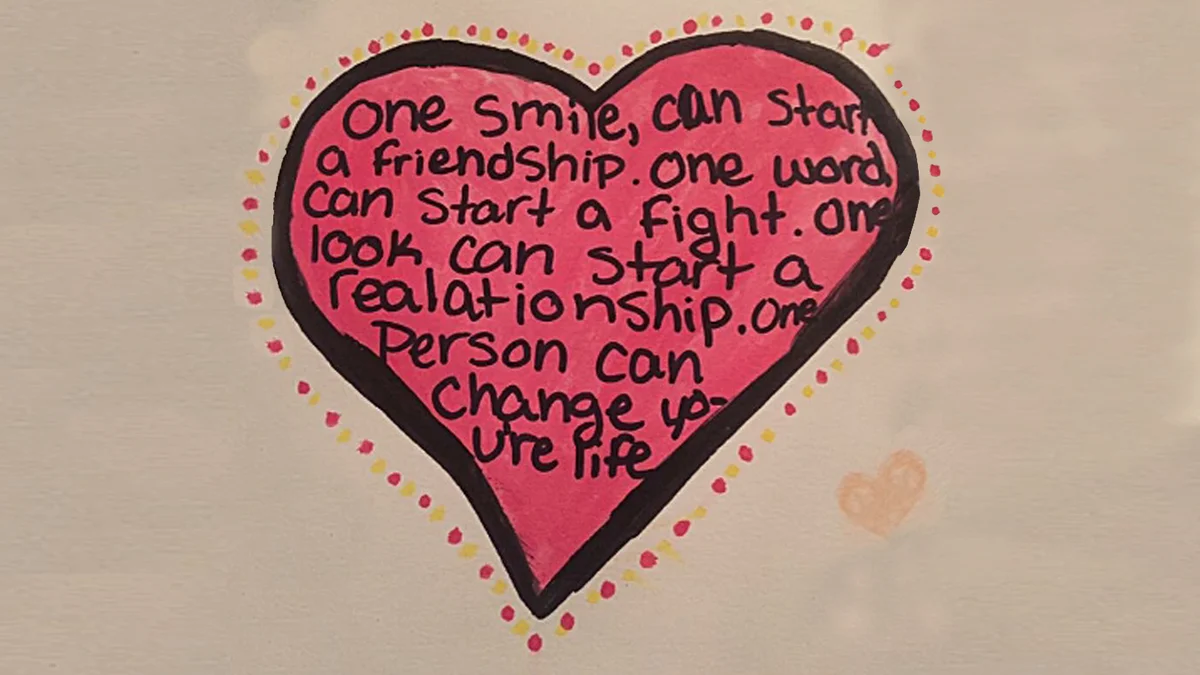 one smile, can start
a friendship. one word
can start a fight. one
look can start a
realationship. one
Person can
change yo-
u're life